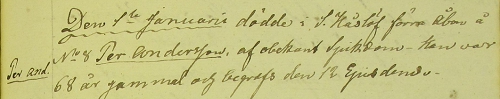 Den 1ste Januarii dödde i S. Håslöf förra Åboen å
No 8 Per Andersson, af obekant sjukdom. Han var
Per And.
68 år gammal och begrofs den 12 Ejusdem.